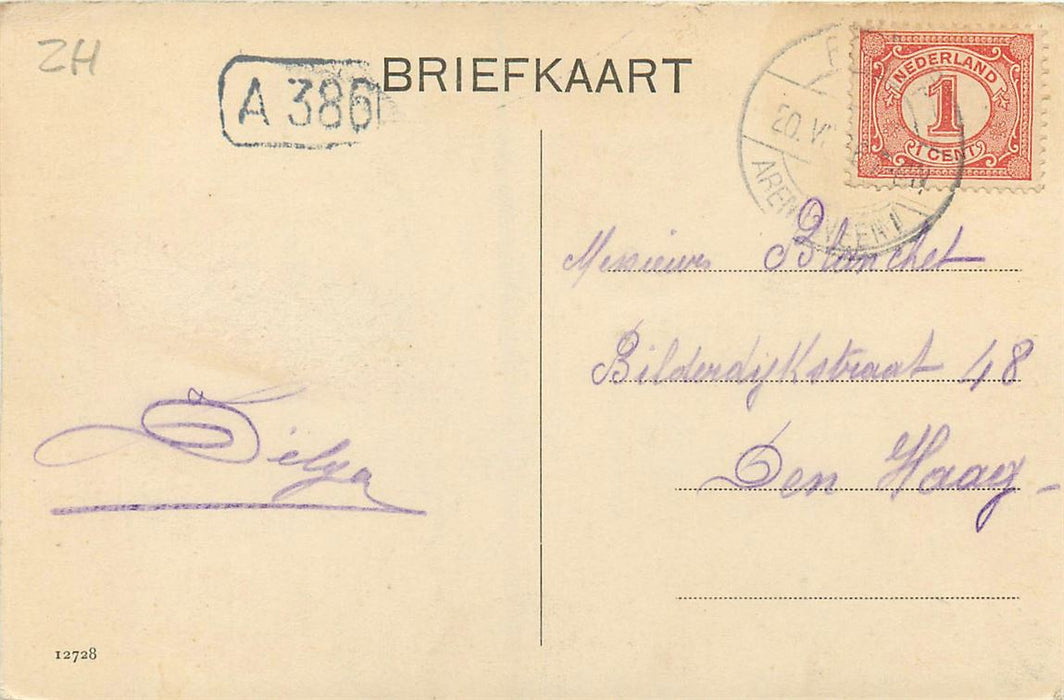 ZH
A 386
BRIEFKAART
NEDERLAND
1
1 CENT
20. VI
Messieurs Blanchet
Bilderdijkstraat 48
Den Haag -
Dilga
12728